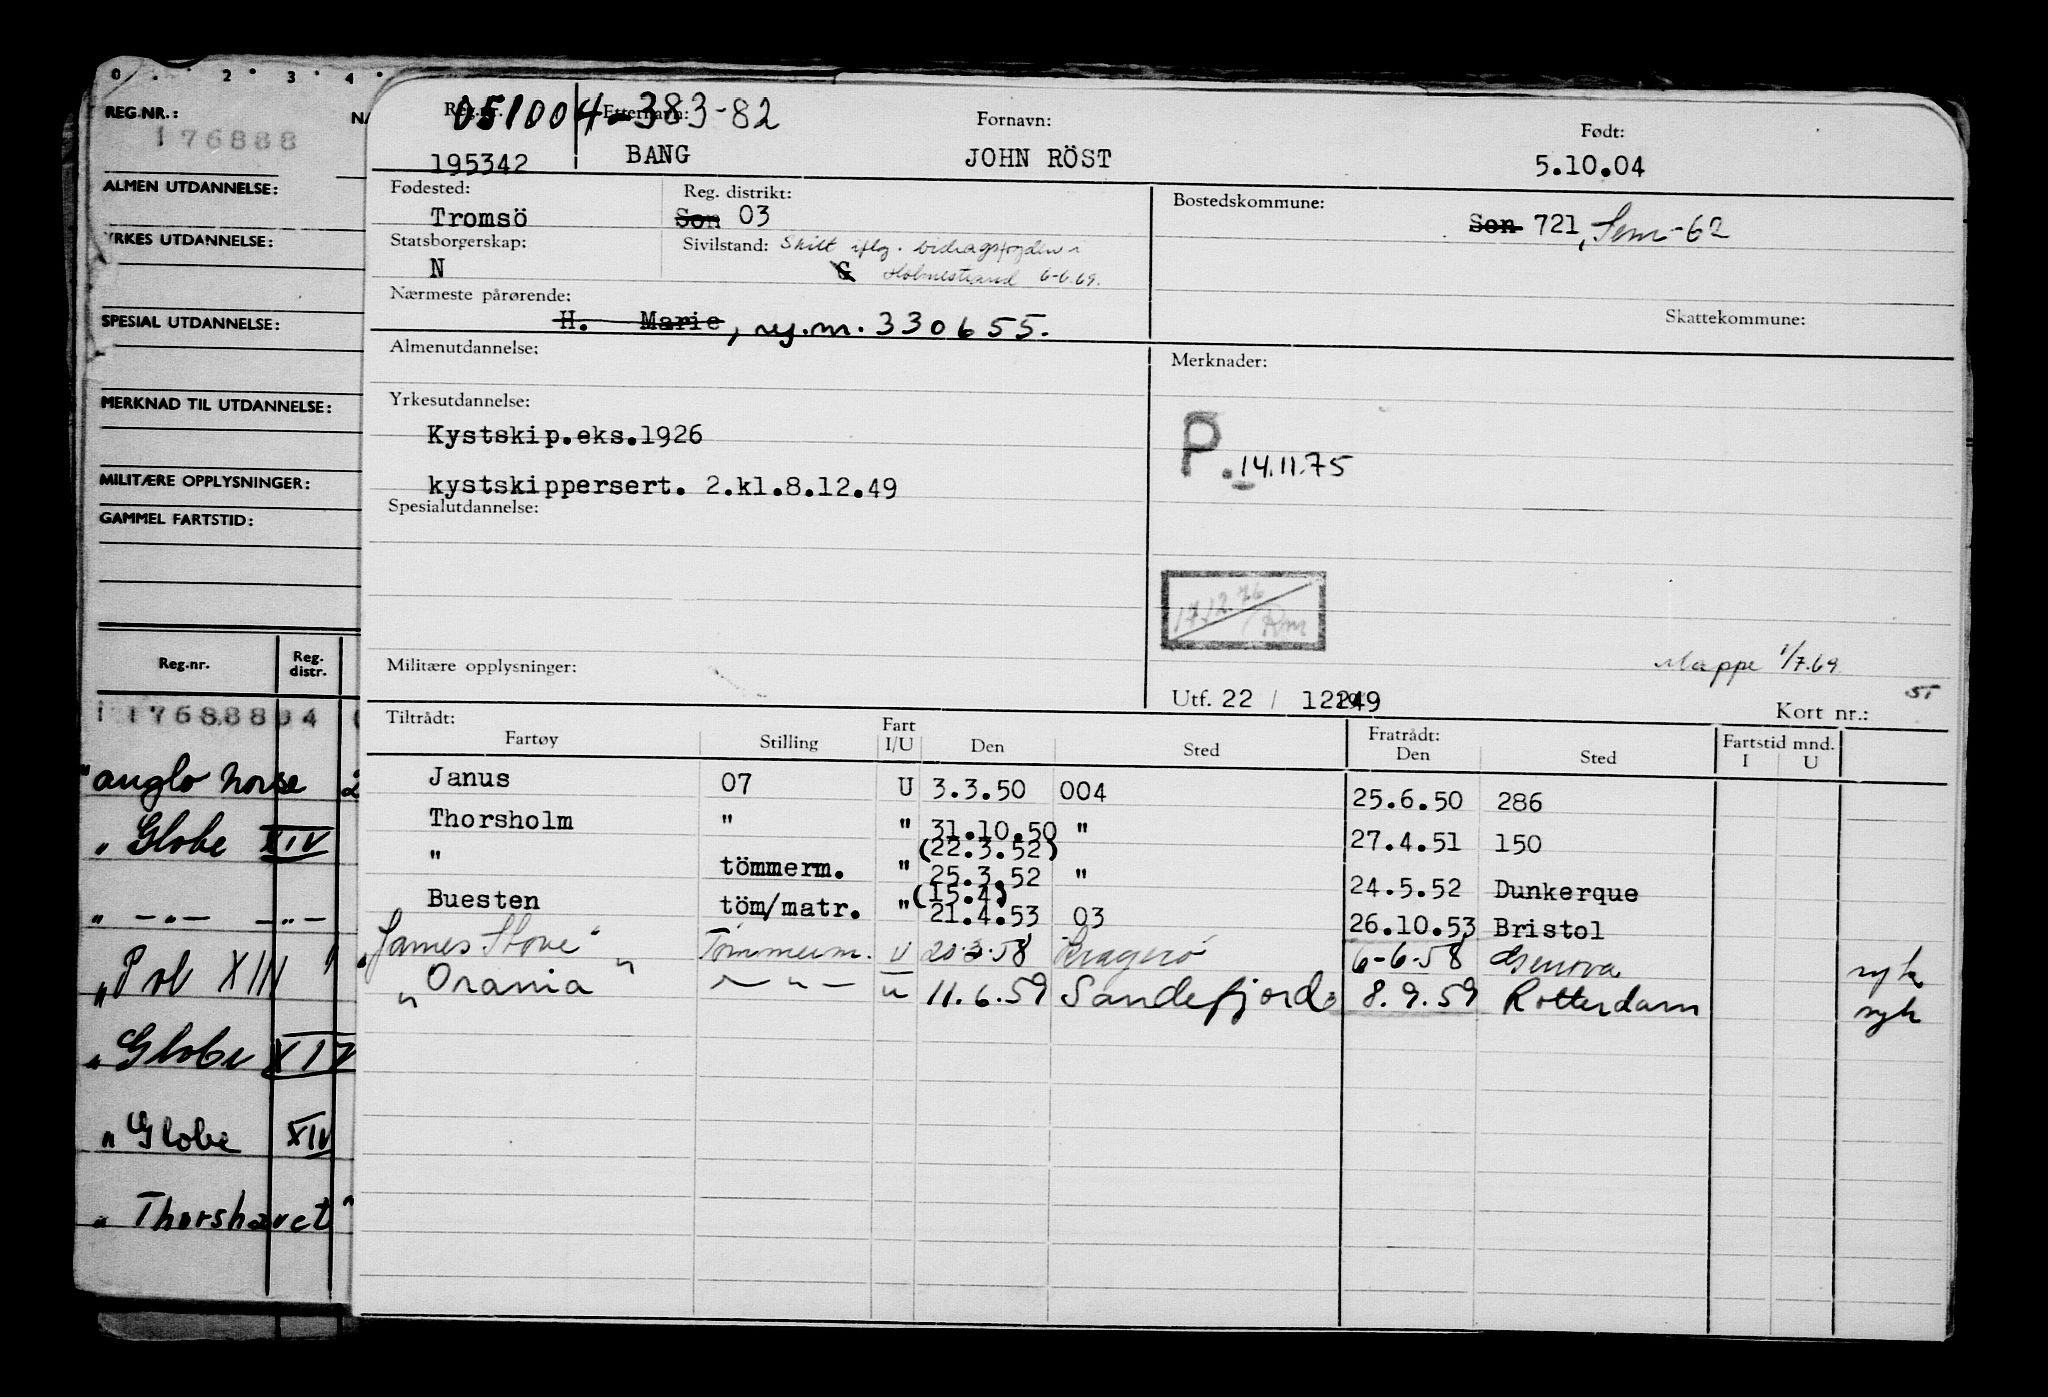 0 . 2 . 3 . 4 .
REG.NR.:
176888
ALMEN UTDANNELSE:
YRKES UTDANNELSE:
SPESIAL UTDANNELSE:
MERKNAD TIL UTDANNELSE:
MILITÆRE OPPLYSNINGER:
GAMMEL FARTSTID:
Reg.nr. Reg. distr.
"anglo norse
" Globe XIV
" —"— —"—
"Pol XIII
"Globe XIV
"Globe XIV
" Thorshavet"
051004-383-82
Reg.nr. Etternavn: Fornavn: Født:
195342 BANG JOHN RÖST 5.10.04
Fødested: Reg. distrikt: Bostedskommune:
Tromsö Son 03 Son 721, Sem-62
Statsborgerskap: Sivilstand: Skilt iflg. bidragsfogden i
N G Holmestrand 6-6.69.
Nærmeste pårørende: Skattekommune:
H. Marie, reg.nr. 330655.
Almenutdannelse: Merknader:
Yrkesutdannelse:
Kystskip.eks.1926
P. 14.11.75
kystskippersert. 2.kl.8.12.49
Spesialutdannelse:
17/12.76
Militære opplysninger: Mappe 1/7.69
Utf. 22 / 12 49 Kort nr.:
Tiltrådt: Fart Fratrådt: Fartstid mnd.
Fartøy Stilling I/U Den Sted Den Sted I U
Janus 07 U 3.3.50 004 25.6.50 286
Thorsholm " " 31.10.50 " 27.4.51 150
(22.3.52)
" tömmerm. " 25.3.52 " 24.5.52 Dunkerque
(15.4)
Buesten töm/matr. " 21.4.53 03 26.10.53 Bristol
"James Stove" Tömmerm. U 20.3.58 Kragerö 6-6-58 Genova syk
"Orania" —"— " 11.6.59 Sandefjord 8.9.59 Rotterdam syk